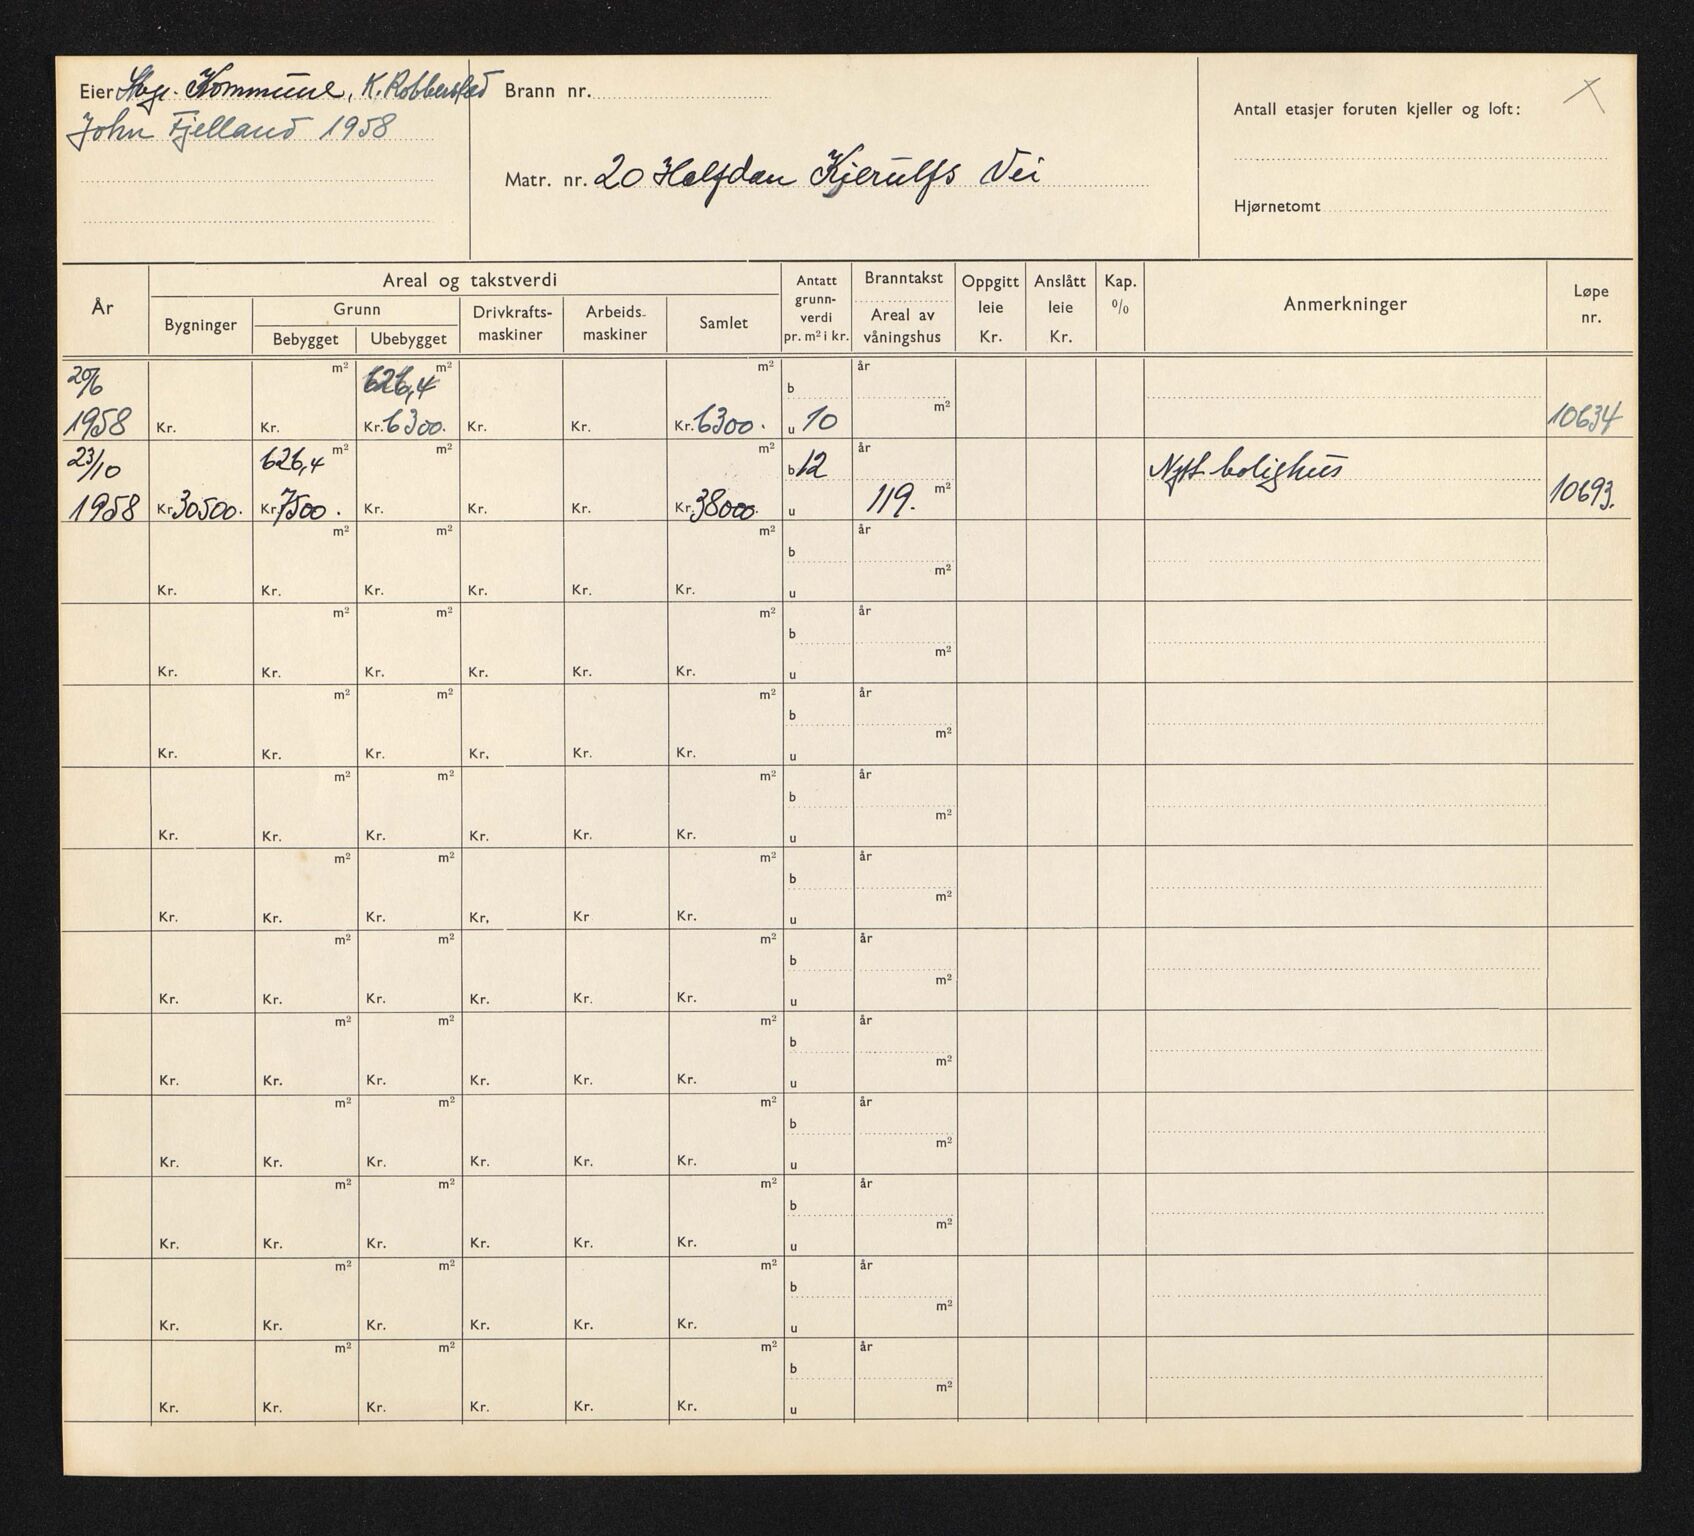 Eier Stvgr. Kommune, K. Robberstad
John Fjelland 1958
Brann nr.
Matr. nr. 20 Halfdan Kjerulfs Vei
Antall etasjer foruten kjeller og loft:
Hjørnetomt
År Areal og takstverdi Antatt grunn-verdi pr. m² i kr. Branntakst Areal av våningshus Oppgitt leie Kr. Anslått leie Kr. Kap. % Anmerkninger Løpe nr.
Bygninger Grunn Drivkrafts-maskiner Arbeids-maskiner Samlet
Bebygget Ubebygget
20/6 m² 626,4 m² m² b år
1958 Kr. Kr. Kr. 6300. Kr. Kr. Kr. 6300. u 10 m² 10634
23/10 626,4 m² m² m² b 12 år Nytt bolighus
1958 Kr. 30500. Kr. 7500. Kr. Kr. Kr. Kr. 38000. u 119. m² 10693.
m² m² m² b år
Kr. Kr. Kr. Kr. Kr. Kr. u m²
m² m² m² b år
Kr. Kr. Kr. Kr. Kr. Kr. u m²
m² m² m² b år
Kr. Kr. Kr. Kr. Kr. Kr. u m²
m² m² m² b år
Kr. Kr. Kr. Kr. Kr. Kr. u m²
m² m² m² b år
Kr. Kr. Kr. Kr. Kr Kr. u m²
m² m² m² b år
Kr. Kr. Kr. Kr. Kr. Kr. u m²
m² m² m² b år
Kr. Kr. Kr. Kr. Kr. Kr. u m²
m² m² m² b år
Kr. Kr. Kr. Kr. Kr. Kr. u m²
m² m² m² b år
Kr. Kr. Kr. Kr. Kr. Kr. u m²
m² m² m² b år
Kr. Kr. Kr. Kr. Kr. Kr. u m²
m² m² m² b år
Kr. Kr. Kr. Kr. Kr. Kr. u m²